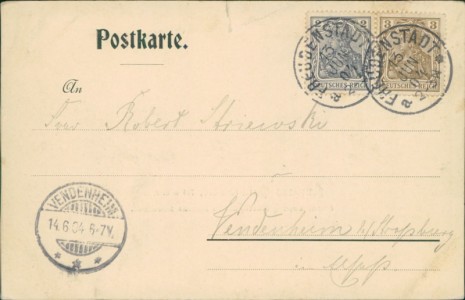 Postkarte.
2
3
DEUTSCHES REICH
DEUTSCHES REICH
FREUDENSTADT
FREUDENSTADT
An
Robert
VENDENHEIM
14.6.04 6-7V.
Vendenheim b/Strassburg